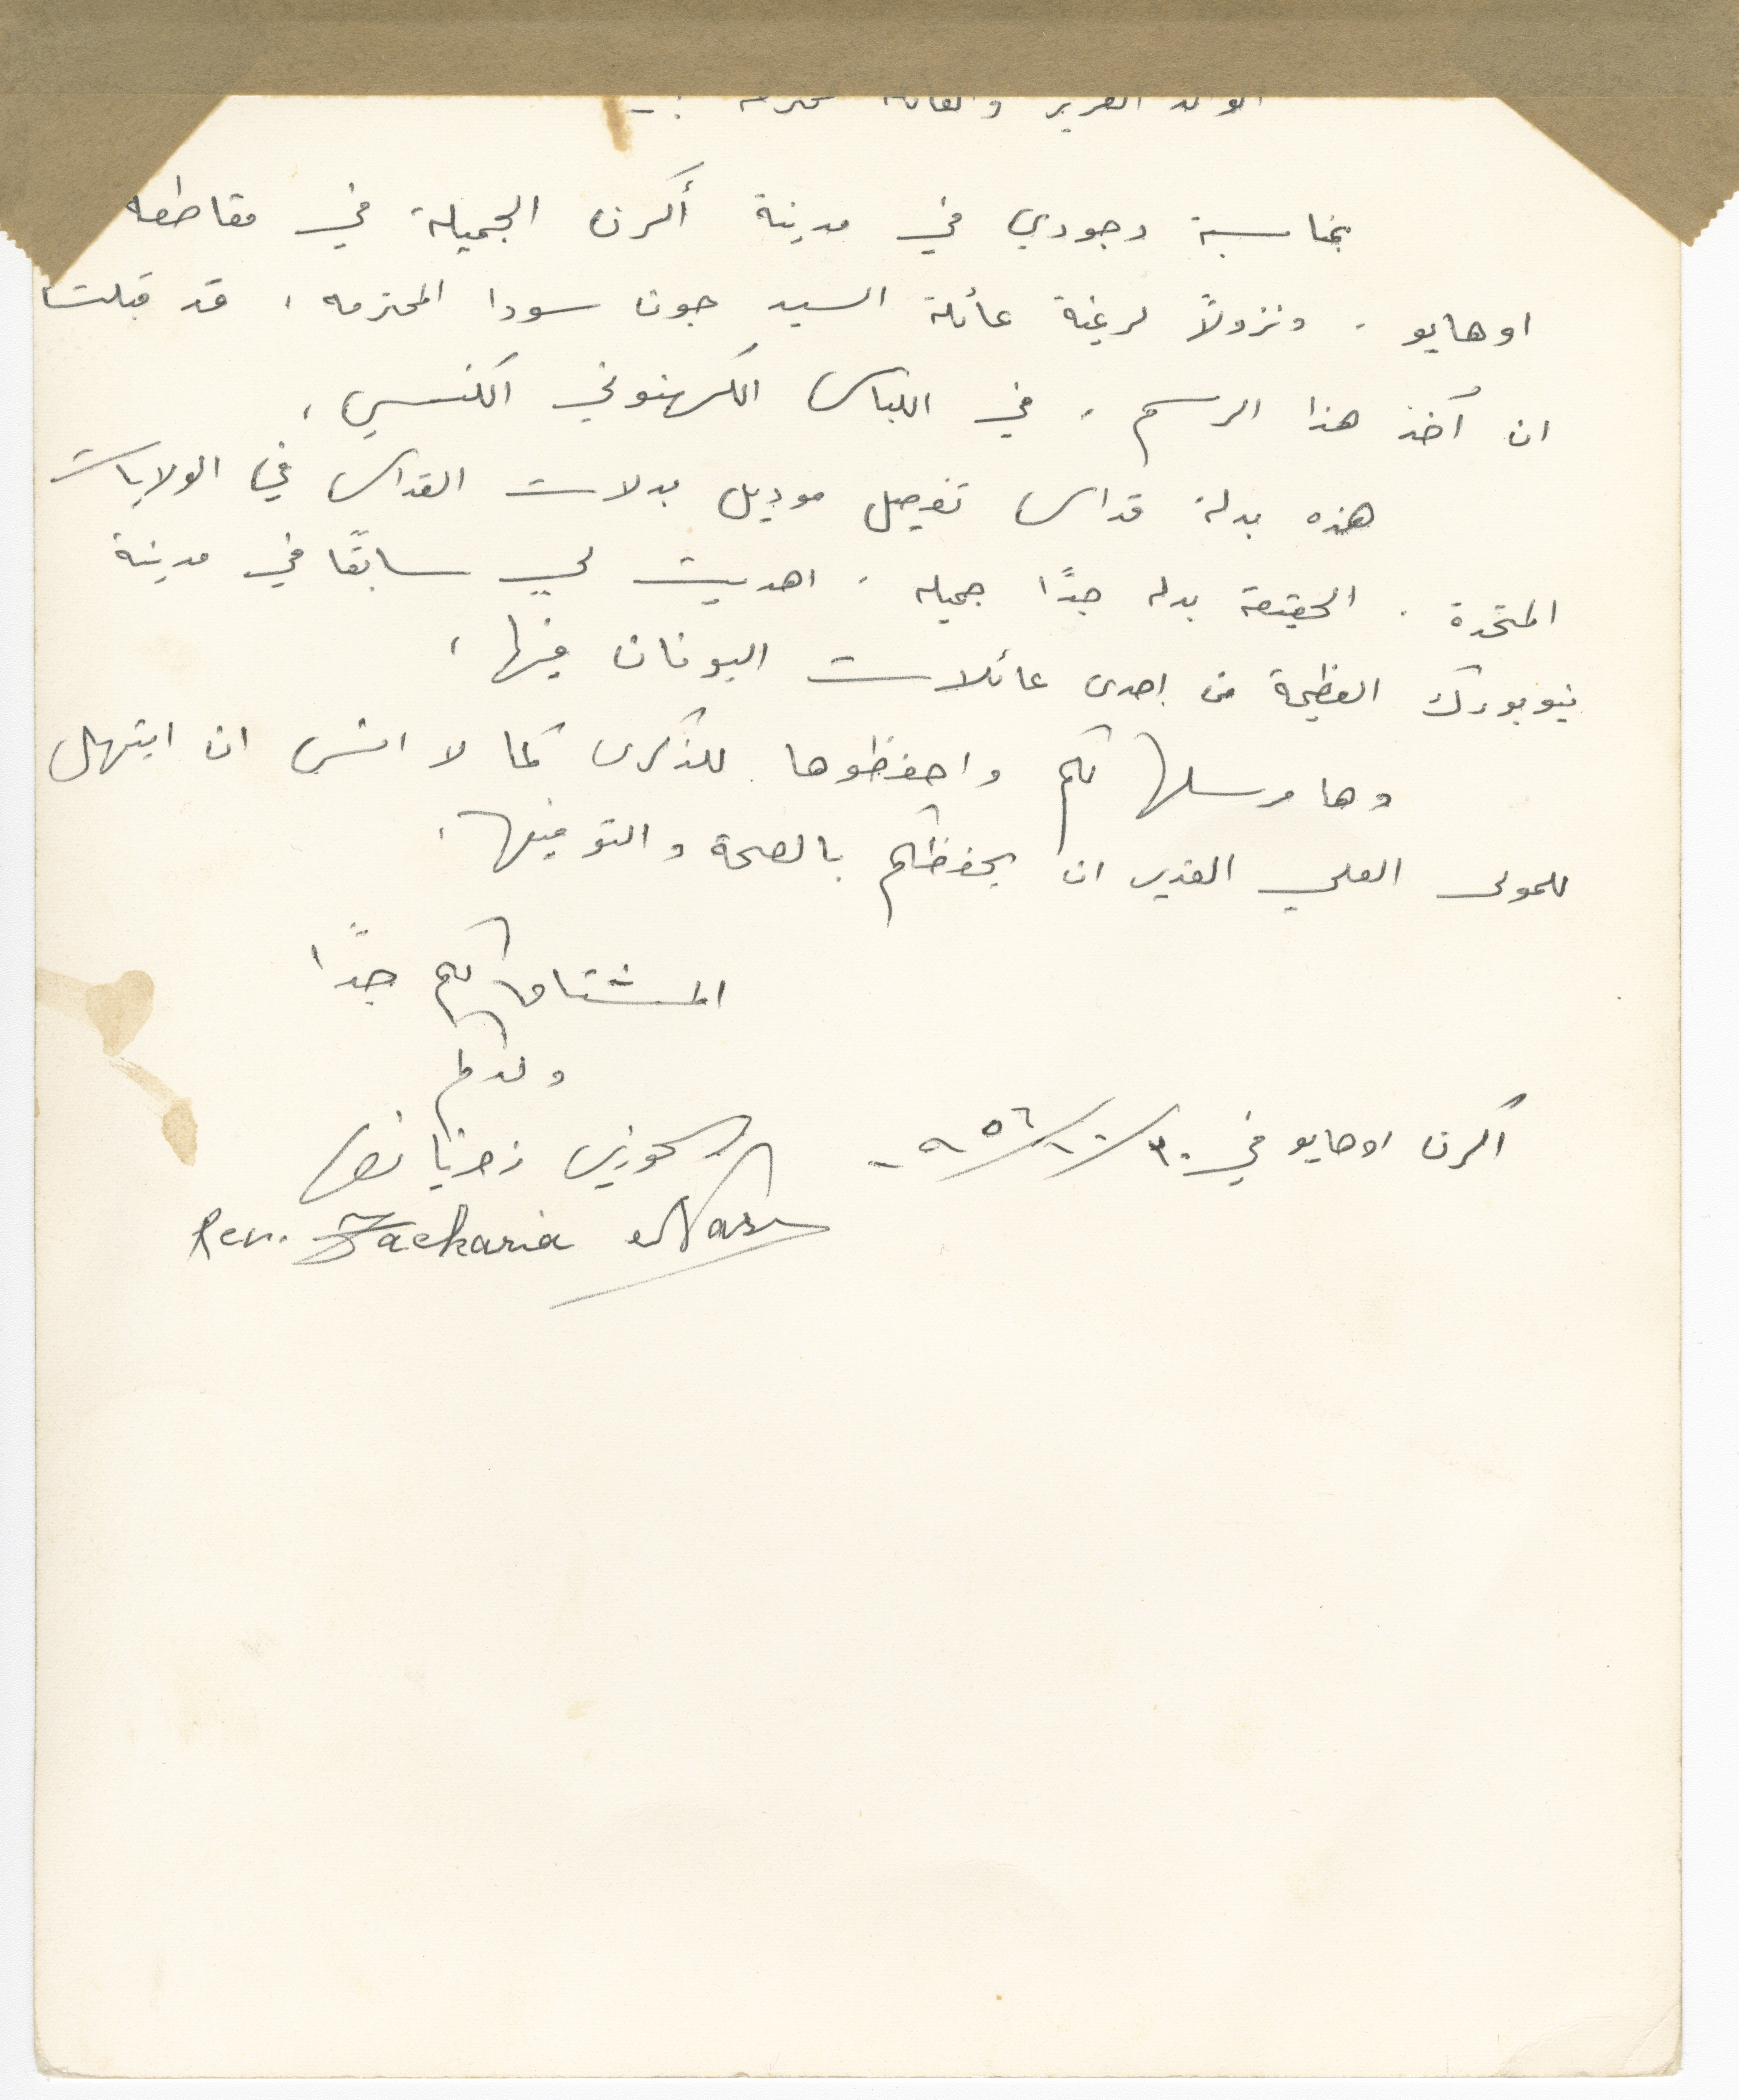 الوالد العزيز والعائلة محترمه :-
بمناسبة وجودي في مدينة أكرن الجميلة في مقاطعة
اوهايو . ونزولاً لرغبة عائلة السيد جون سودا المحترمه ، قد قبلت
ان آخذ هذا الرسم . في اللباس الكهنوتي الكنسي ،
هذه بدلة قداس تفصيل موديل بدلات القداس في الولايات
المتحدة . الحقيقة بدله جدًا جميله . اهديت لي سابقًا في مدينة
نيويورك العظيمة من إحدى عائلات اليونان فيها ،
وها مرسلها لكم واحفظوها للذكرى كما لا انسى ان ابتهل
للمولى العلي القدير ان يحفظكم بالصحة والتوفيق .
المشتاق لكم جدًا
ولدكم
اكرن اوهايو في ٣٠/١٠/٩٥٦
الخوري زخريا نصر
Rev. Zacharia Nasr